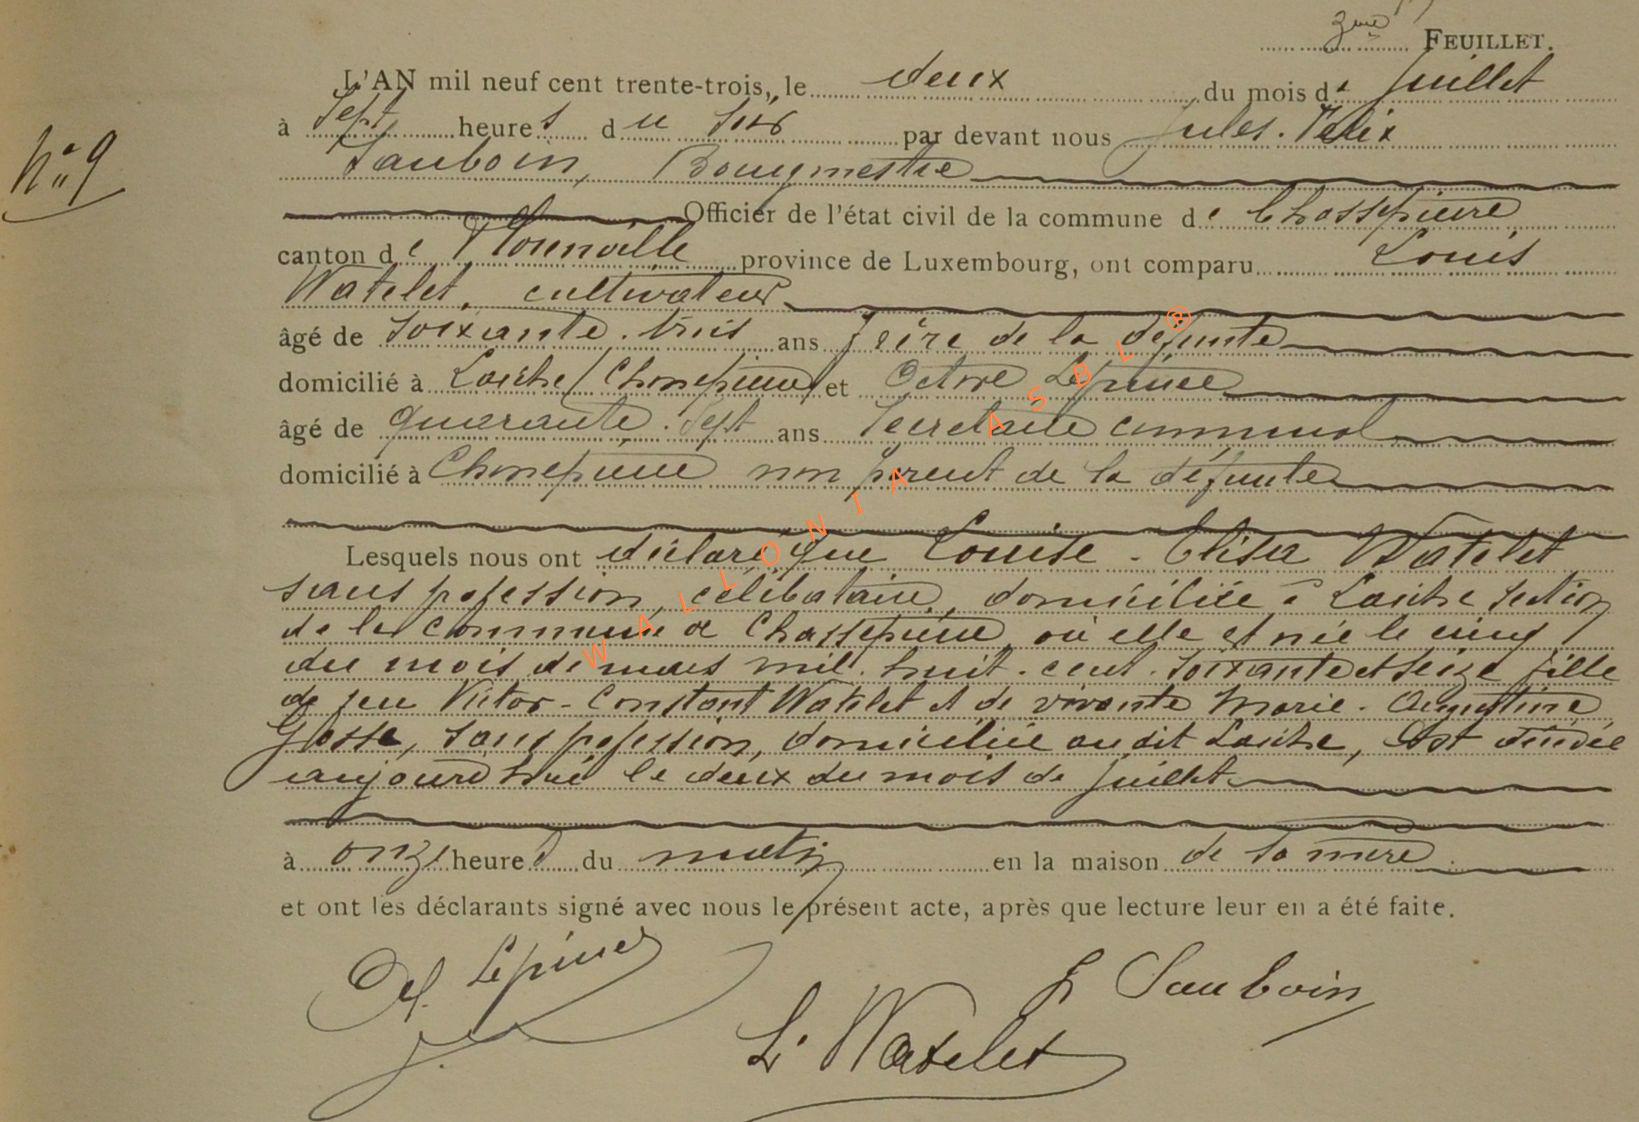 3me FEUILLET.
L'AN mil neuf cent trente-trois, le deux du mois de Juillet
à Sept heures du Soir par devant nous Jules. Félix
N° 9
Sauboin, Bourgmestre
Officier de l'état civil de la commune de Chassepierre
canton de Florenville province de Luxembourg, ont comparu Louis
Watelet, cultivateur
âgé de soixante. trois ans frère de la défunte
domicilié à Laiche (Chassepierre) et Octave Lépine
âgé de quarante. Sept ans Secrétaire communal
domicilié à Chassepierre non parent de la défunte
Lesquels nous ont déclaré que Louise - Elisa Watelet
sans profession, célibataire, domiciliée à Laiche section
de la commune de Chassepierre où elle est née le cinq
du mois de mars mil. huit. cent. soixante et seize fille
de feu Victor - Constant Watelet et de vivante Marie - Augustine
Gosse, sans profession, domiciliée au dit Laiche, est décédée
aujourd'hui le deux du mois de juillet
à onze heures du matin en la maison de sa mère
et ont les déclarants signé avec nous le présent acte, après que lecture leur en a été faite.
Lépine
F Sauboin
L. Watelet
WALLONIA ASBL ®